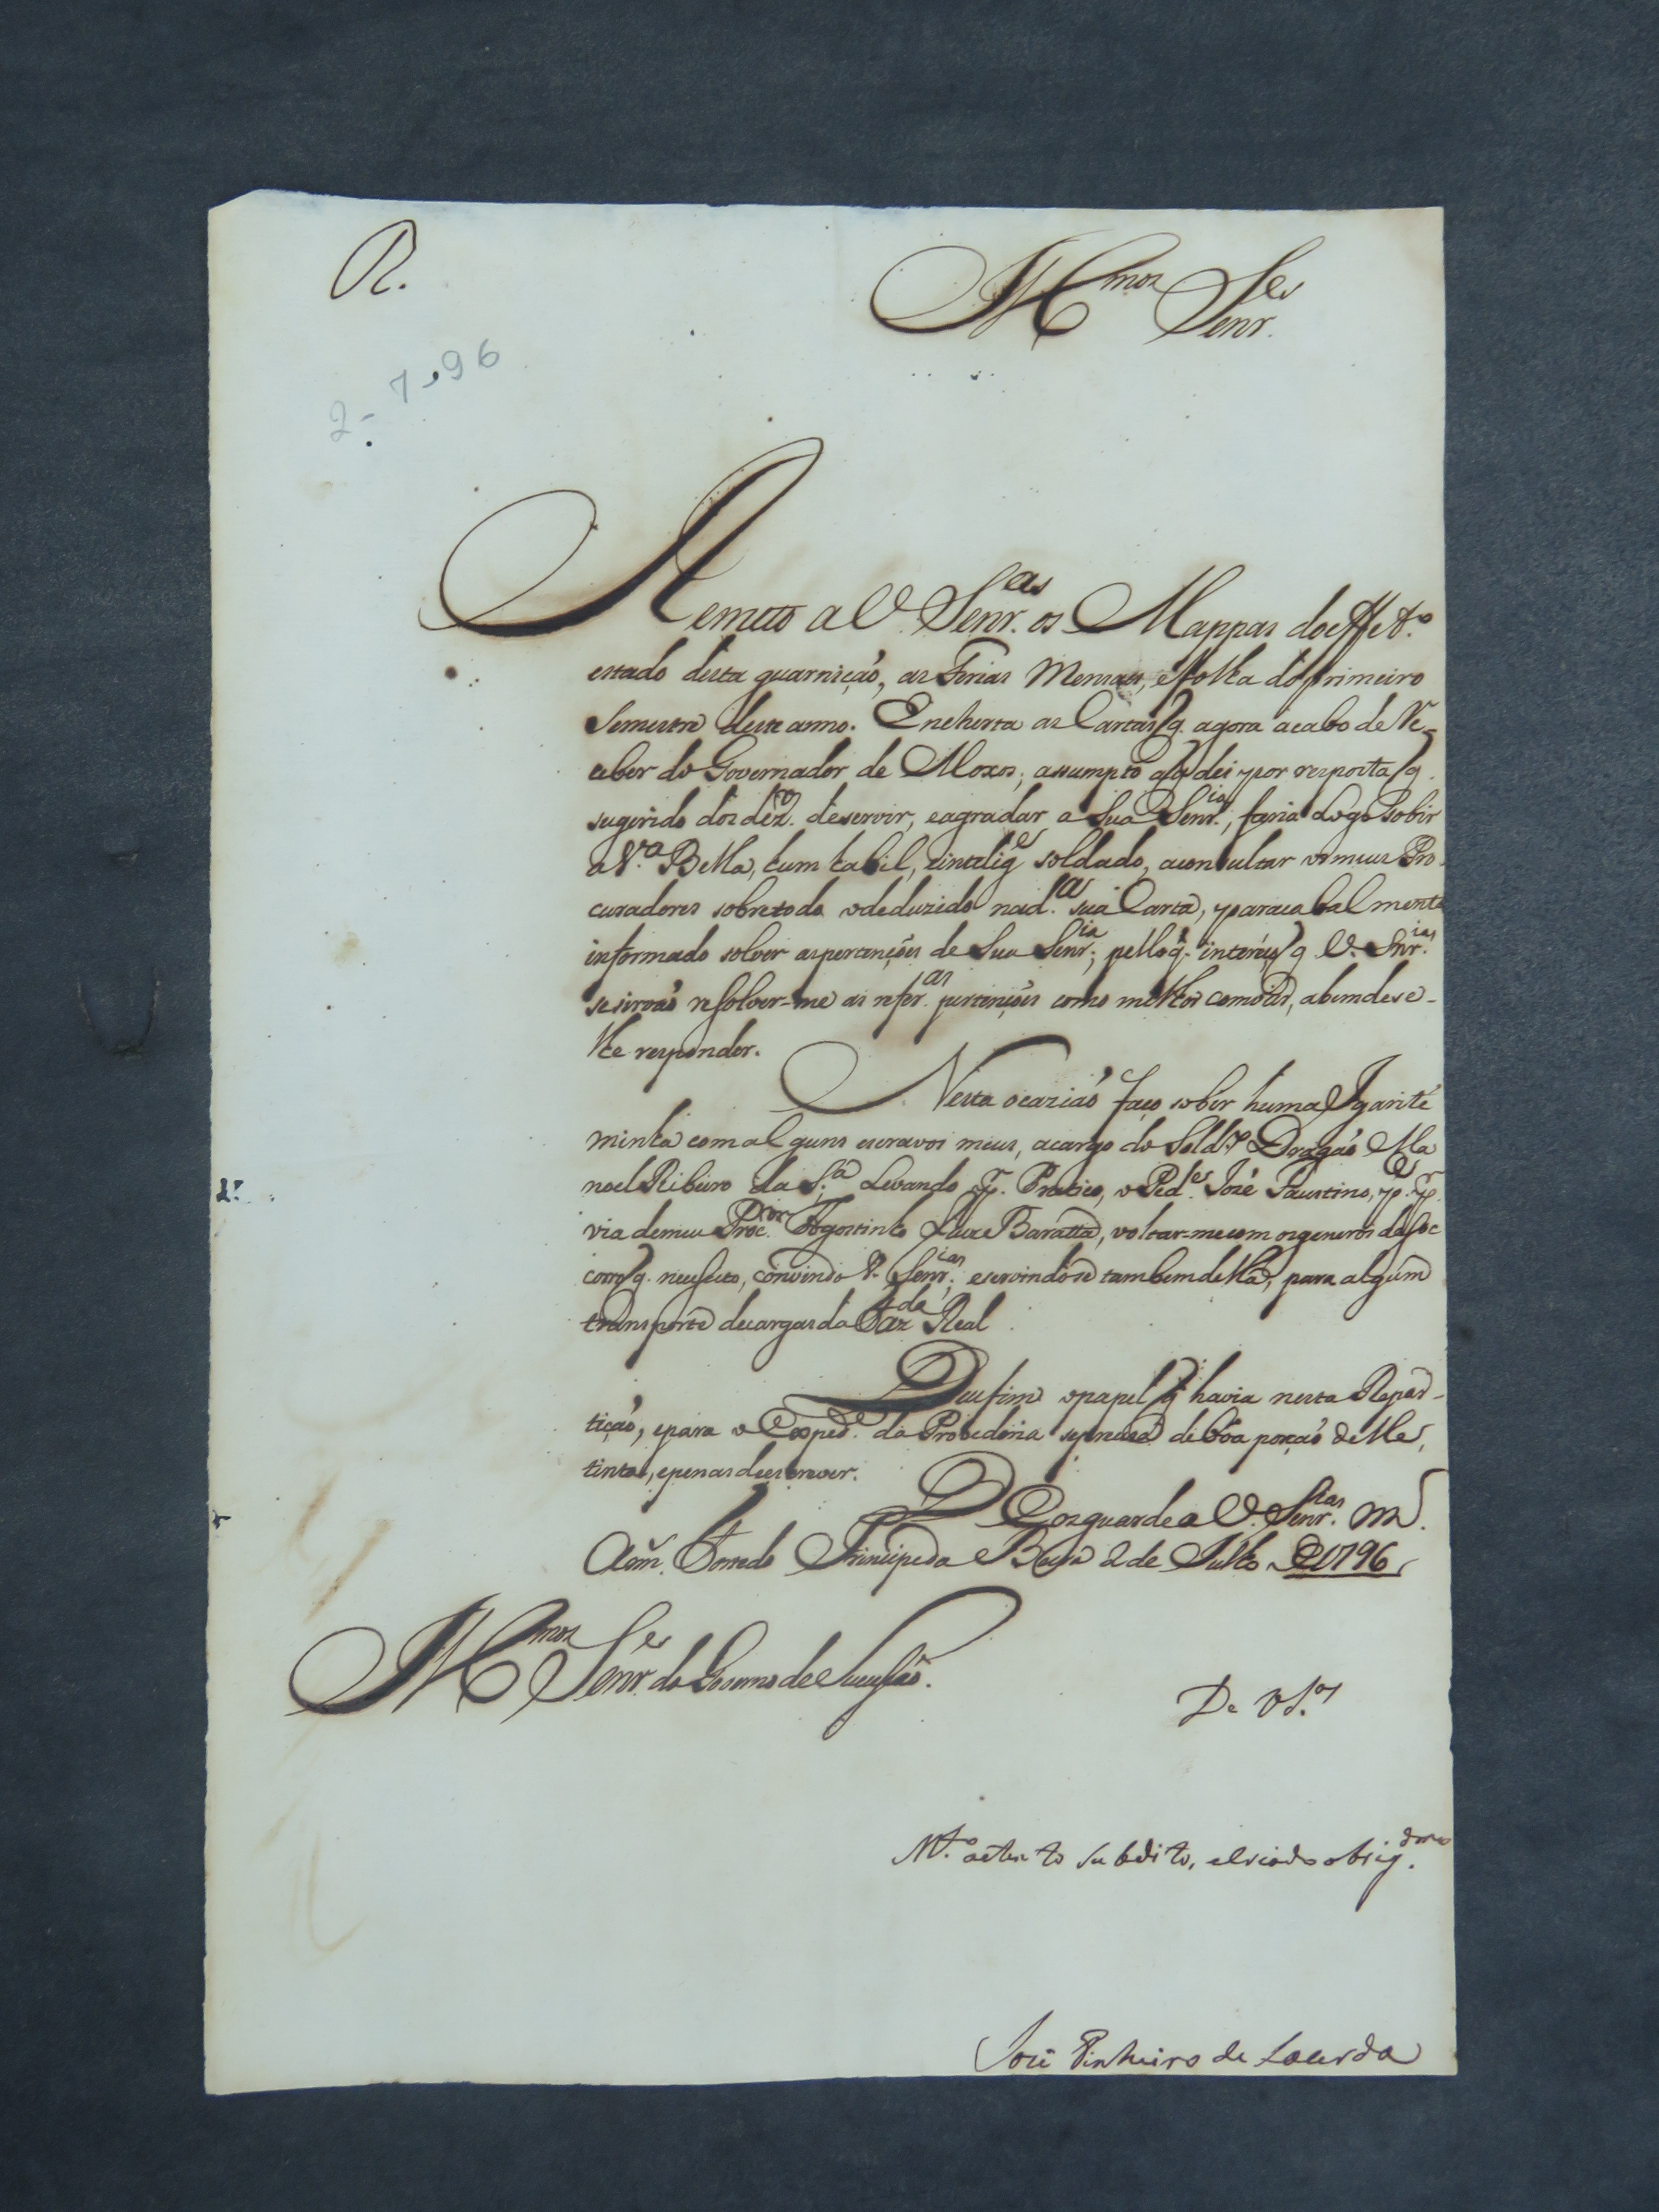 R.
Ill.mos Senr.es
2-7-96
Remeto a V. Senr.as os Mappas do effet.o
estado desta guarnição, as Ferias Mensaes, e folha do primeiro
Semestre deste anno. Incluza as Cartas q. agora acabo de Re-
ceber do Governador de Moxos; assumpto a q. dei por resposta q.
sugerido dos dez.os de servir, e agradar a Sua Senr.ia, faria logo sobir
a V.a Bella, hum habil, e intelig.e soldado, a consultar os meus Pro-
curadores sobre todo o deduzido na d.a sua Carta, para cabalmente
informado solver as pertenções de Sua Senr.ia; pello q. interéço q V. Snr.ias
se sirvaõ resolver-me as refer.as pertenções como milhor comodas, a bem de se-
lhe responder.
Nesta ocaziaõ faço sobir huma Igarité
minha com alguns escravos meus, a cargo do Sold.o Dragaõ Ma
noel Ribeiro da S.a Levando p. Pratico, o Ped.e José Faustino, p.a p.
via de meu Proc.or Agostinho Luiz Baratta, voltar-me com os generos de soc
corro q. necessito, convindo V. Senr.ias, e servindose tambem della, para algum
transporte de cargas da Faz.da Real.
Deu fim o papel q havia nesta Repar-
tiçaõ, e para o Exped.e da Provedoria se preciza de bôa porçaõ delle,
tinta, e penas de escrever.
Deos guarde a V. Senr.ias m.s
Ann. Forte do Principe da Beira 2 de Julho de 1796
Ill.mos Senr.es do Governo de Sucessaõ.
De V S.as
M.to atento subdito, e criado obrig.dmo
José Pinheiro de Lacerda